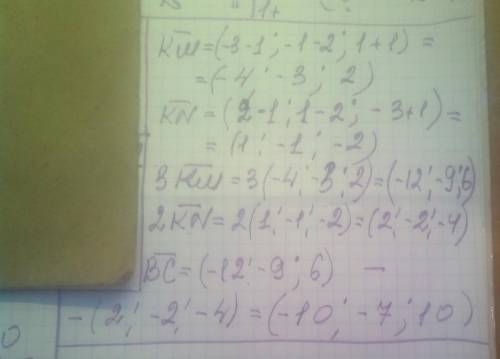 KM̅=(-3-1; -1-2; 1+1) =
=(-4; -3; 2)
KN̅=(2-1; 1-2; -3+1)=
= (1; -1; -2)
3KM̅=3(-4; -3; 2)=(-12; -9; 6)
2KN̅=2(1; -1; -2)=(2; -2; -4)
BC̅=(-12; -9; 6) —
-(2; -2; -4) = (-10; -7; 10)